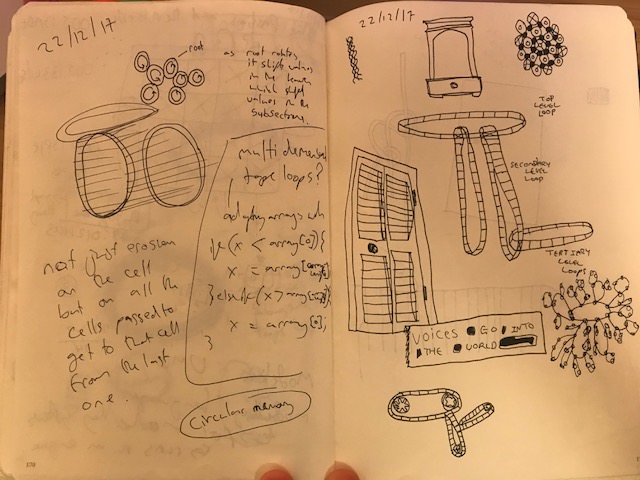 22/12/17
root
as root rotates
it shifts values
in the
which shift
values in the
subsections.
multi
tape loops?
arrays
if (x < array[0]){
x = array[
}elseif(x>array[
x = array[0];
}
not just erosion
on the cell
but on all the
cells passed to
get to that cell
from the last
one.
circular memory
170
22/12/17
TOP
LEVEL
LOOP
SECONDARY
LEVEL
LOOP
TERTIARY
LEVEL
LOOPS
VOICES GO INTO
THE WORLD